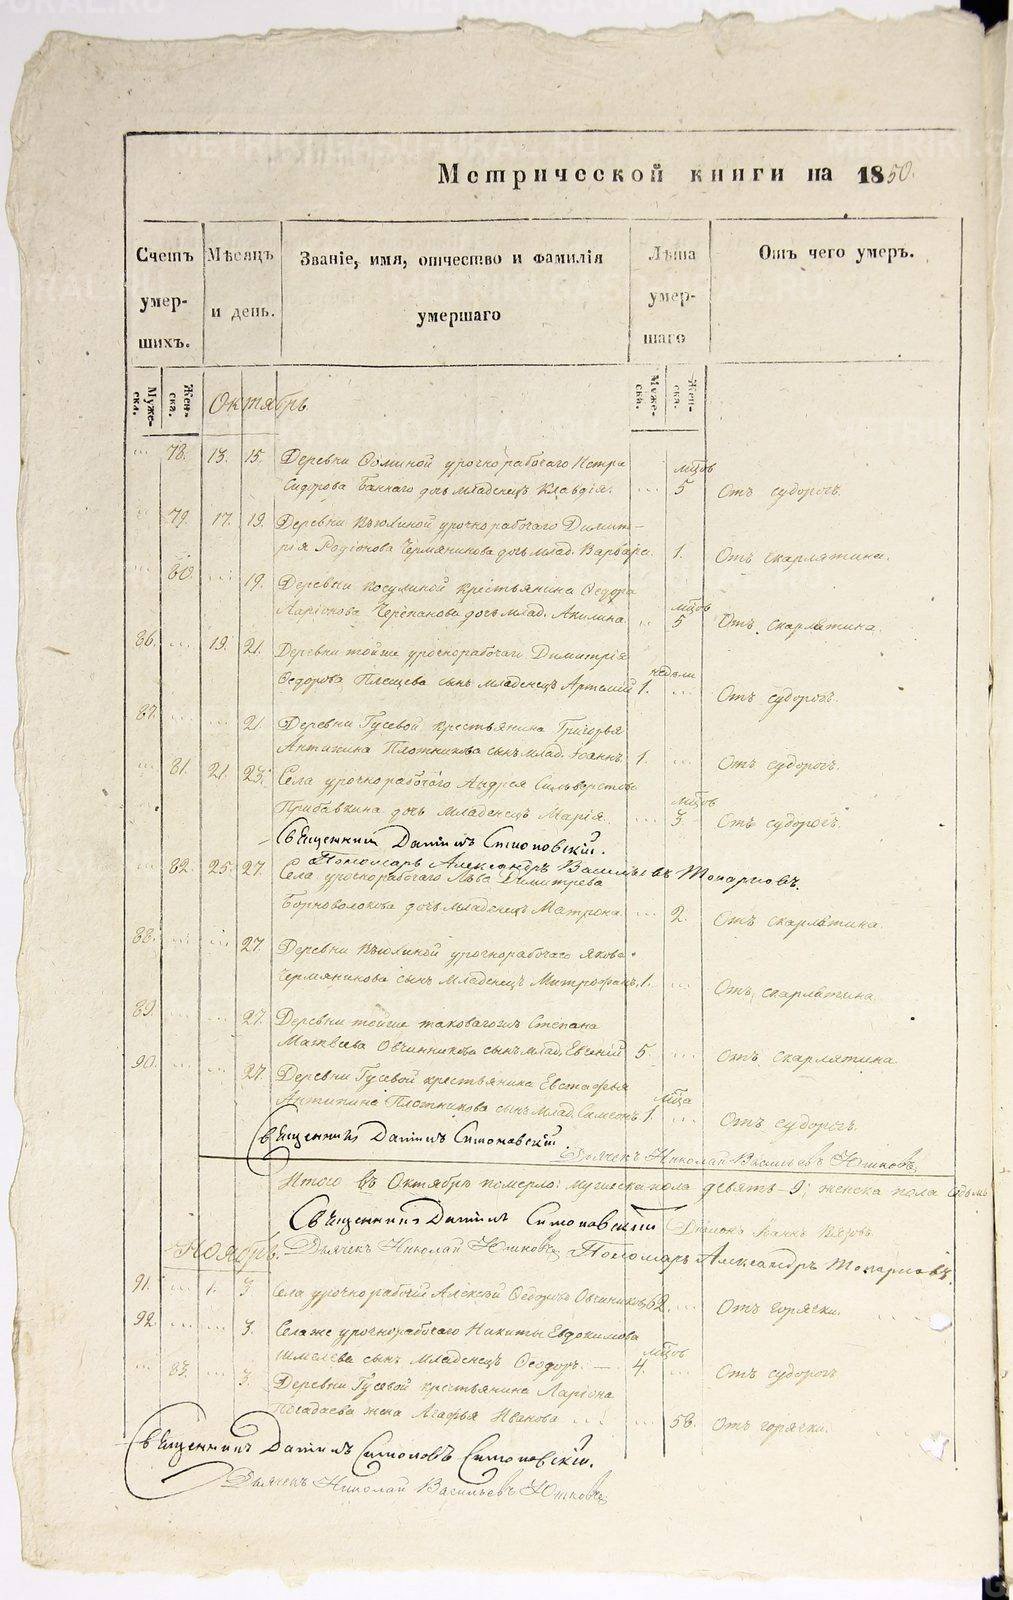 Метрической книги на 1850.
Счетъ умершихъ.
Мѣсяцъ и день.
Званіе, имя, отчество и фамилія умершаго
Лѣта умершаго
Отъ чего умеръ.
Муже- ска.
Жен- ска.
Муже- ска.
Жен- ска.
Октябрь
78. 13. 15. Деревни Фоминой урочнорабочаго Петра мцов
Сидорова сына дочь младенецъ Клавдія. 5 Отъ судорогъ.
79. 17. 19. Деревни урочнорабочаго Димит-
рія Родіонова Чермянинова дочь млад. Варвара. 1. Отъ скарлятина.
80. 19. Деревни Косулиной крестьянина Ѳедора мцов
Ларіонова Черепанова дочь млад. Акилина 5 Отъ скарлятина.
86. 19. 21. Деревни тойже урочнорабочаго Димитрія недели
Ѳедорова Плещева сынъ младенецъ Артемій 1. Отъ судорогъ.
87. 21. Деревни Гусевой крестьянина Григорья
Антипина Плотникова сынъ млад. Іоаннъ 1. Отъ судорогъ.
81. 21. 23. Села урочнорабочаго Андрея Сильверстова мцов
Прибавкина дочь младенецъ Марія. 3. Отъ судорогъ.
Священникъ Даніилъ Симоновскій.
Пономарь Александръ Васильевъ Топарковъ.
82. 25. 27. Села урочнорабочаго Льва Димитрева
Борноволокова дочь младенецъ Матрона 2. Отъ скарлятина.
88. 27. Деревни урочнорабочаго Якова
Чермянинова сынъ младенецъ Митрофанъ 1. Отъ скарлятина
89. 27. Деревни тойже таковагожъ Степана
Матвѣева Овчинникова сынъ млад. Евгеній 5. Отъ скарлятина
90. 27. Деревни Гусевой крестьянина Евстафья мца
Антипина Плотникова сынъ млад. Симеонъ 1. Отъ судорогъ.
Священникъ Даніилъ Симоновскій.
Дьячекъ Николай Васильевъ Юшковъ
Итого въ Октябрѣ померло: мужеска пола девять-9; женска пола седмь
Священникъ Даніилъ Симоновскій Діаконъ Іоаннъ
Дьячекъ Николай Юшковъ Пономарь Александръ Топарковъ.
Ноябрь.
91. 1. 3. Села урочнорабочій Алексѣй Ѳедоровъ Овчинниковъ 62. Отъ горячки.
92. 3. Села же урочнорабочаго Никиты Евдокимова мцов
Шмелева сынъ младенецъ Ѳеодоръ. 4. Отъ судорогъ
83. 3. Деревни Гусевой крестьянина Ларіона
жена Агафья Иванова 58. Отъ горячки.
Священникъ Даніилъ Симоновъ Симоновскій.
Дьячекъ Николай Васильевъ Юшковъ